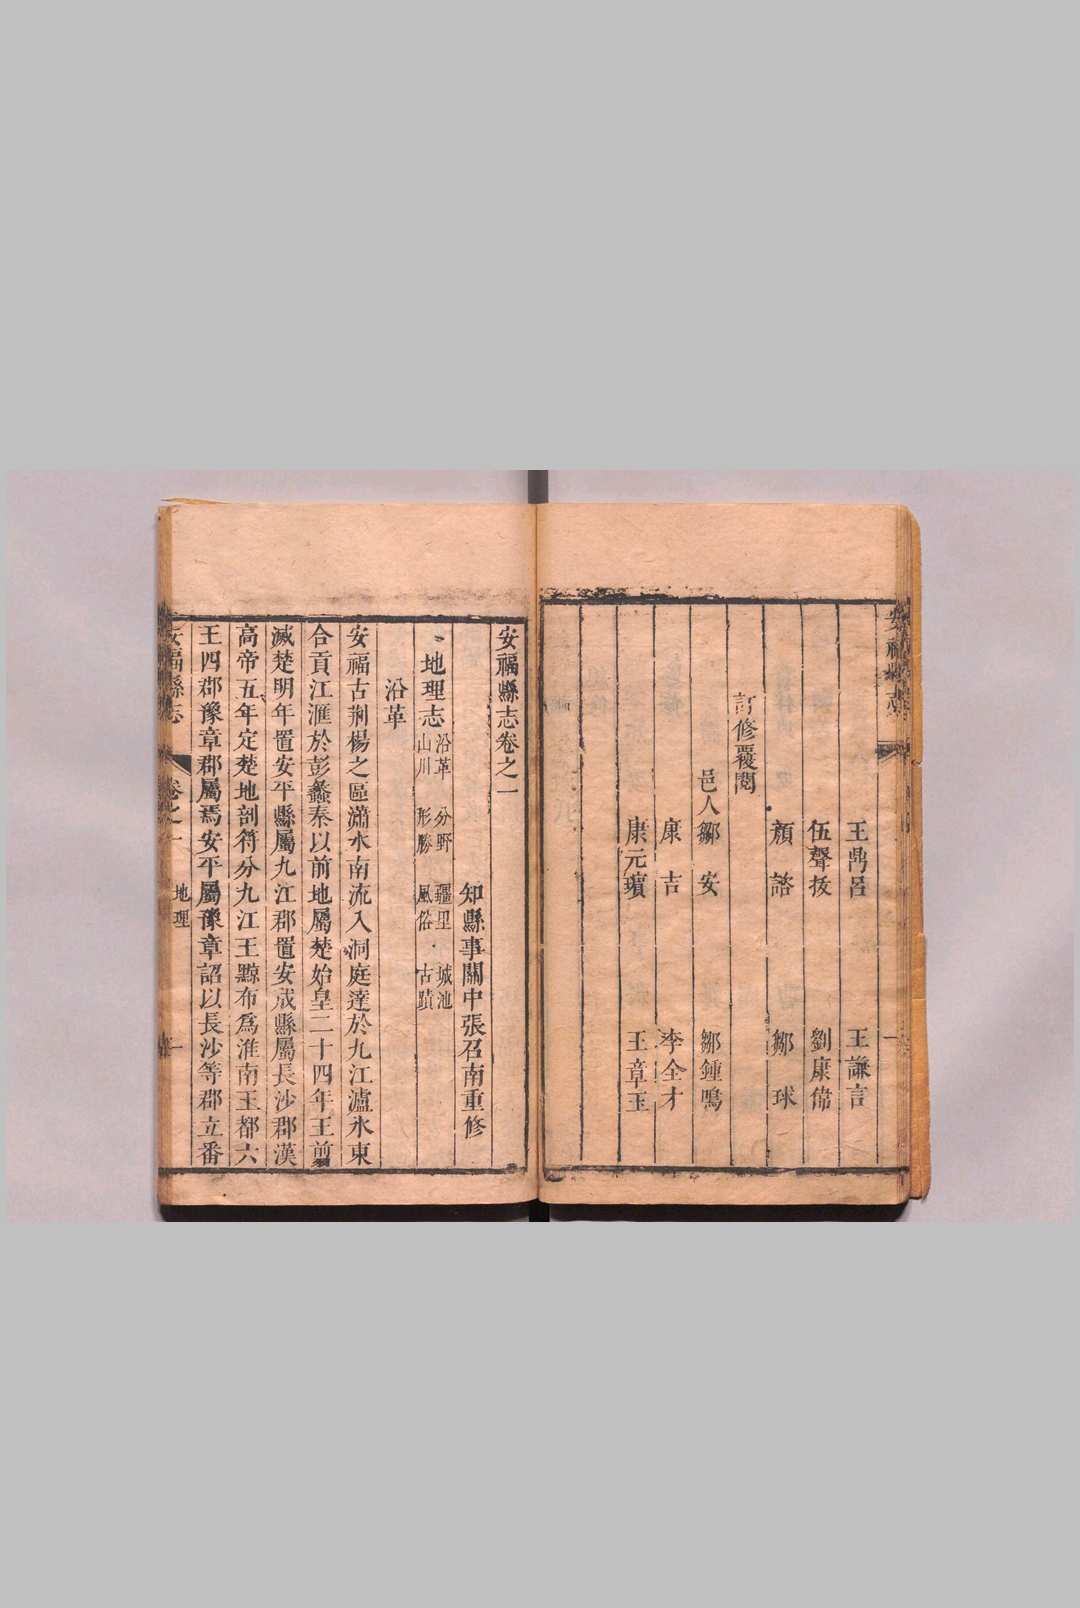 王鼎呂 王謙言
伍聲抜 劉康偉
顏諮 鄒球
訂修覆閱
邑人鄒安 鄒鍾鳴
康吉 李全才
康元璸 王章玉
安福縣志卷之一
知縣事關中張召南重修
地理志 沿革 分野 疆里 城池
山川 形勝 風俗 古蹟
沿革
安福古荆楊之區瀟水南流入洞庭達於九江瀘水東
合貢江滙於彭蠡秦以前地屬楚始皇二十四年王翦
滅楚明年置安平縣屬九江郡置安成縣屬長沙郡漢
高帝五年定楚地剖符分九江王黥布爲淮南王都六
王四郡豫章郡屬焉安平屬豫章詔以長沙等郡立番
安福縣志 卷之一 地理 一